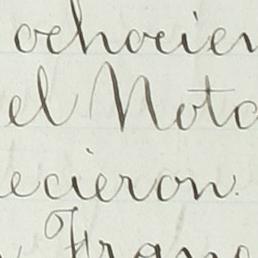 ochocien
el Nota
ecieron.
Franc